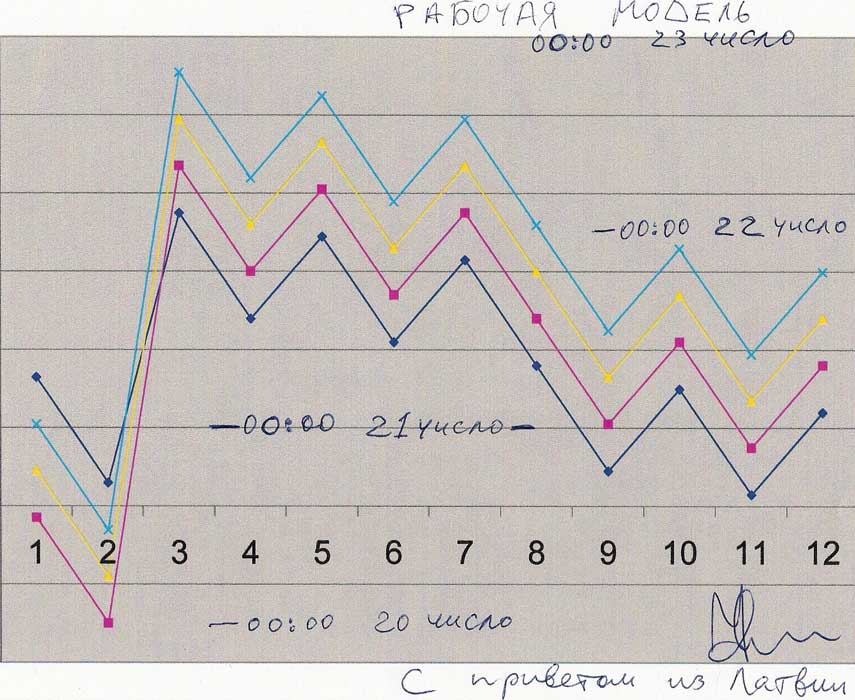 РАБОЧАЯ МОДЕЛЬ
00:00 23 число
—00:00 22 число
—00:00 21 число—
1 2 3 4 5 6 7 8 9 10 11 12
—00:00 20 число
С приветом из Латвии